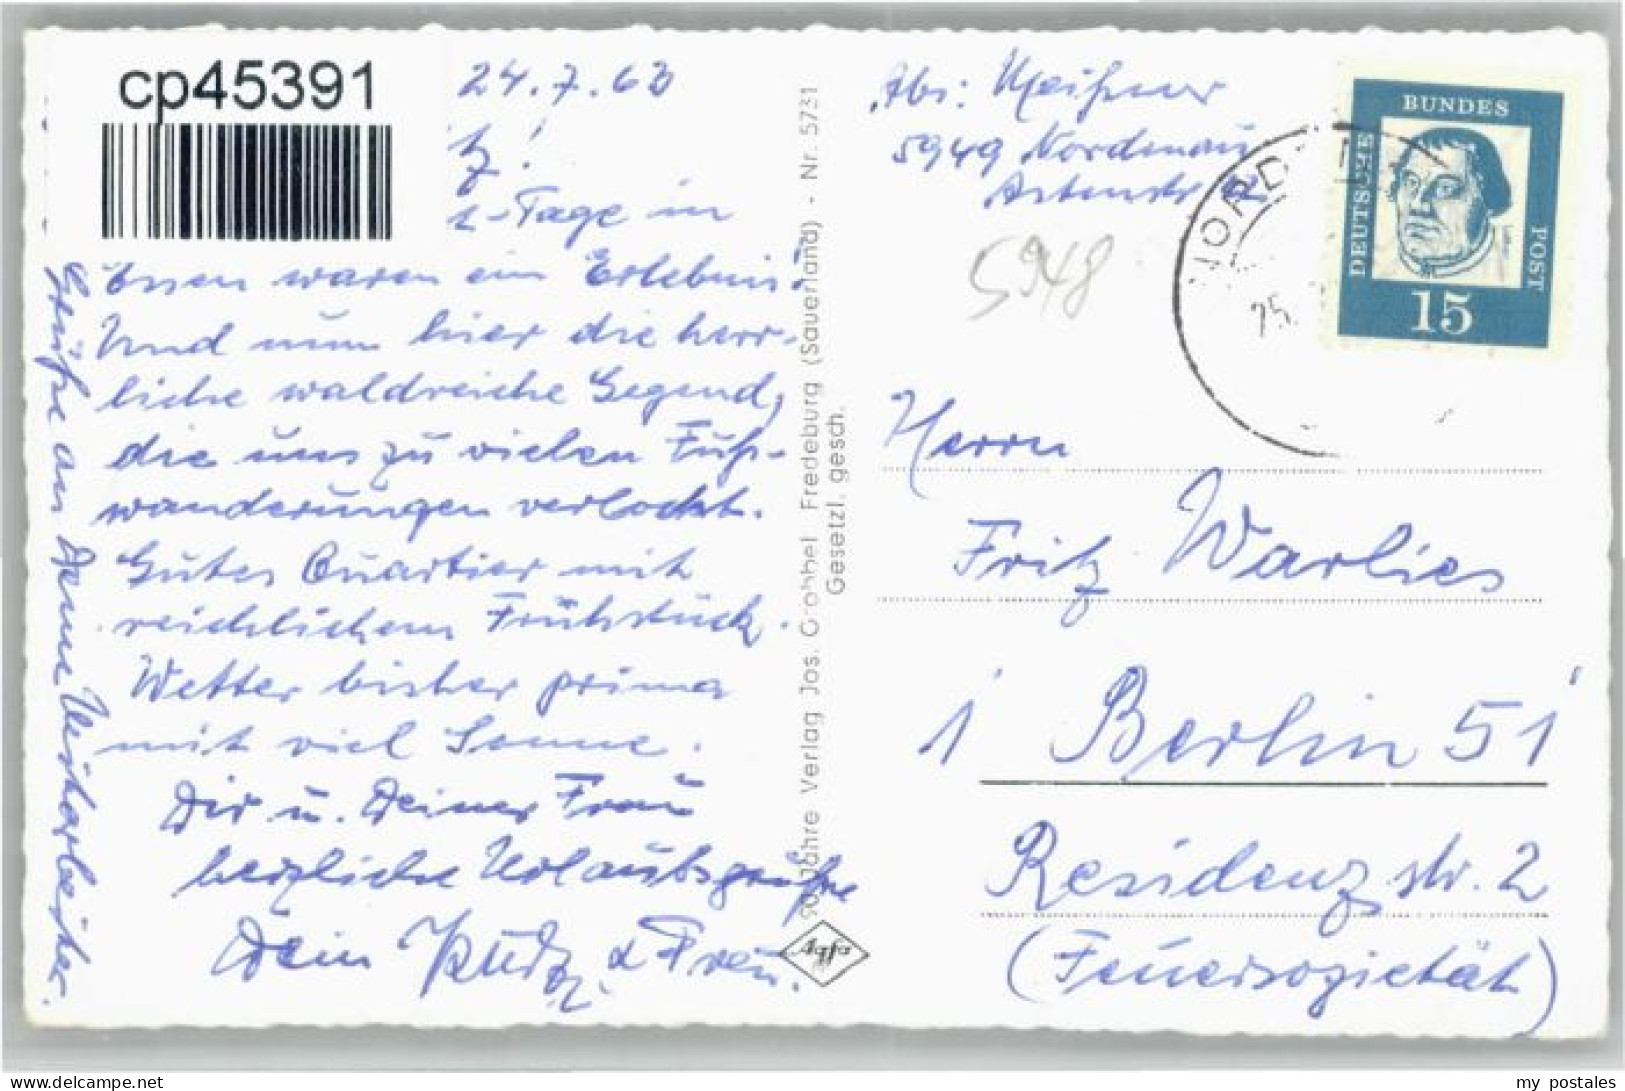 cp45391
24.7.63
-Tage in
Essen waren ein Erlebnis!
Und nun hier die herr-
liche waldreiche Gegend,
die uns zu vielen Fuß-
wanderungen verlockt.
Gutes Quartier mit
reichlichem Frühstück.
Wetter bisher prima
mit viel Sonne.
Dir u. Deiner Frau
herzliche Urlaubsgrüße
Dein & Frau.
Grüße an Deine Mitarbeiter.
90 Jahre Verlag Jos. Grobbel Fredeburg (Sauerland) - Nr. 5731
Gesetzl. gesch.
Agfa
Abs: Meißner
5949 Nordenau
Astenstr.
5948
DEUTSCHE
BUNDES
POST
15
NORD
25.
Herrn
Fritz Warlies
1 Berlin 51
Residenzstr. 2
(Feuersozietät)
my postales